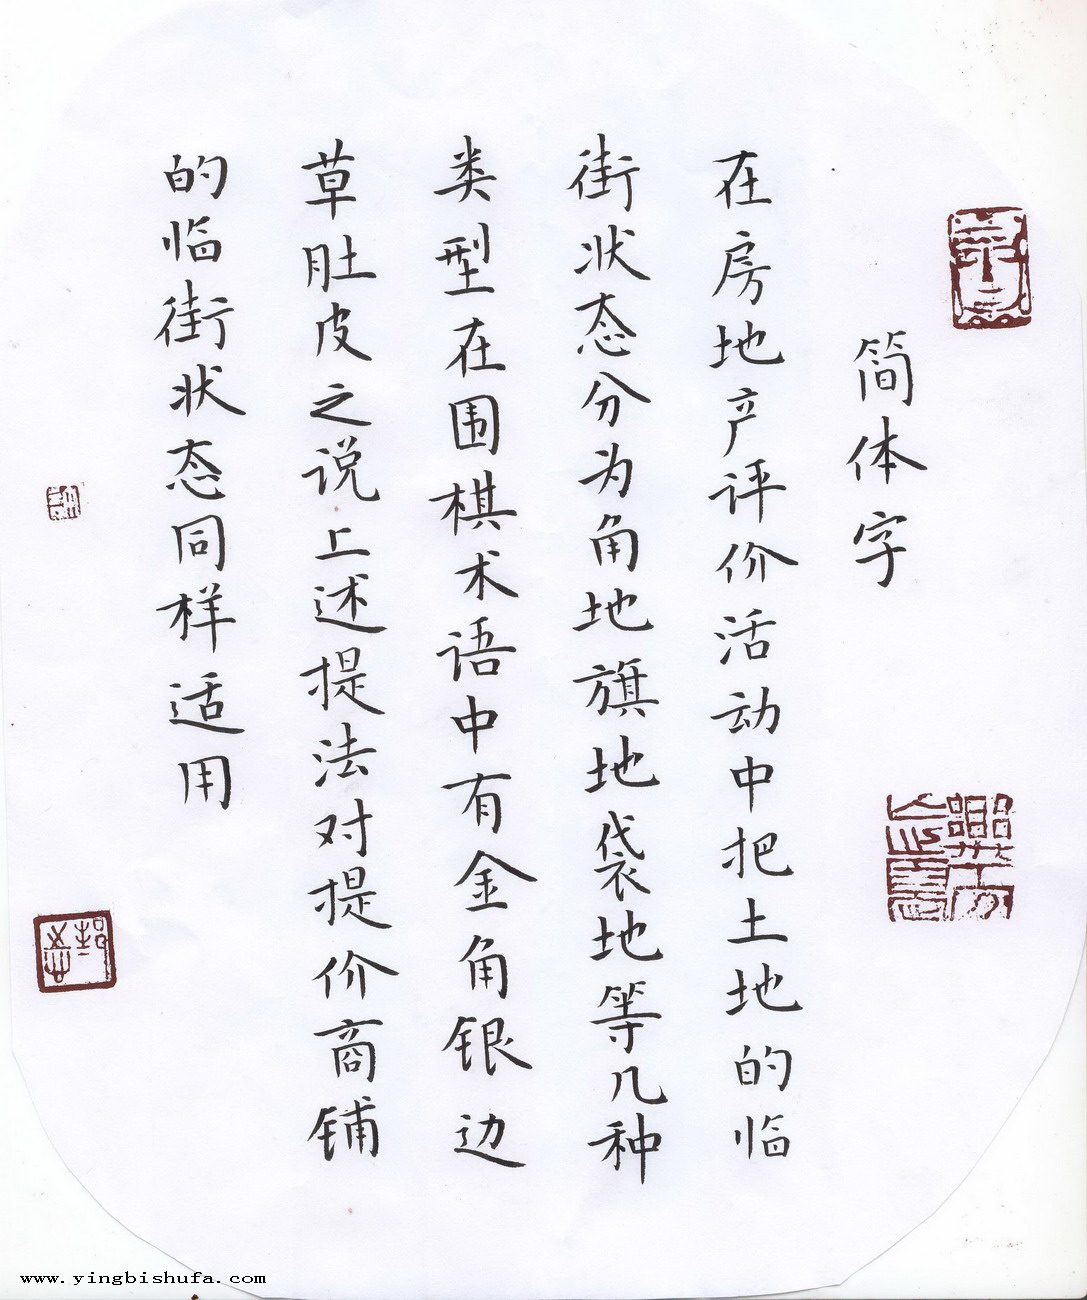 简体字
在房地产评价活动中把土地的临
街状态分为角地旗地袋地等几种
类型在围棋术语中有金角银边
草肚皮之说上述提法对提价商铺
的临街状态同样适用
www.yingbishufa.com